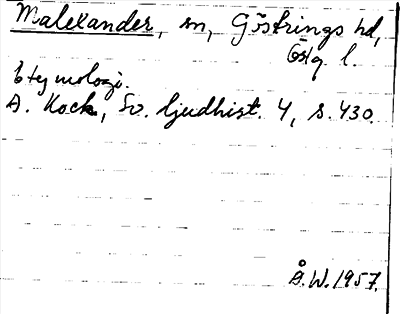 Malexander, sn, Göstrings hd,
Östg. l.
Etymologi.
A. Kock, Sv. ljudhist. 4, s. 430.
Å. W. 1957.